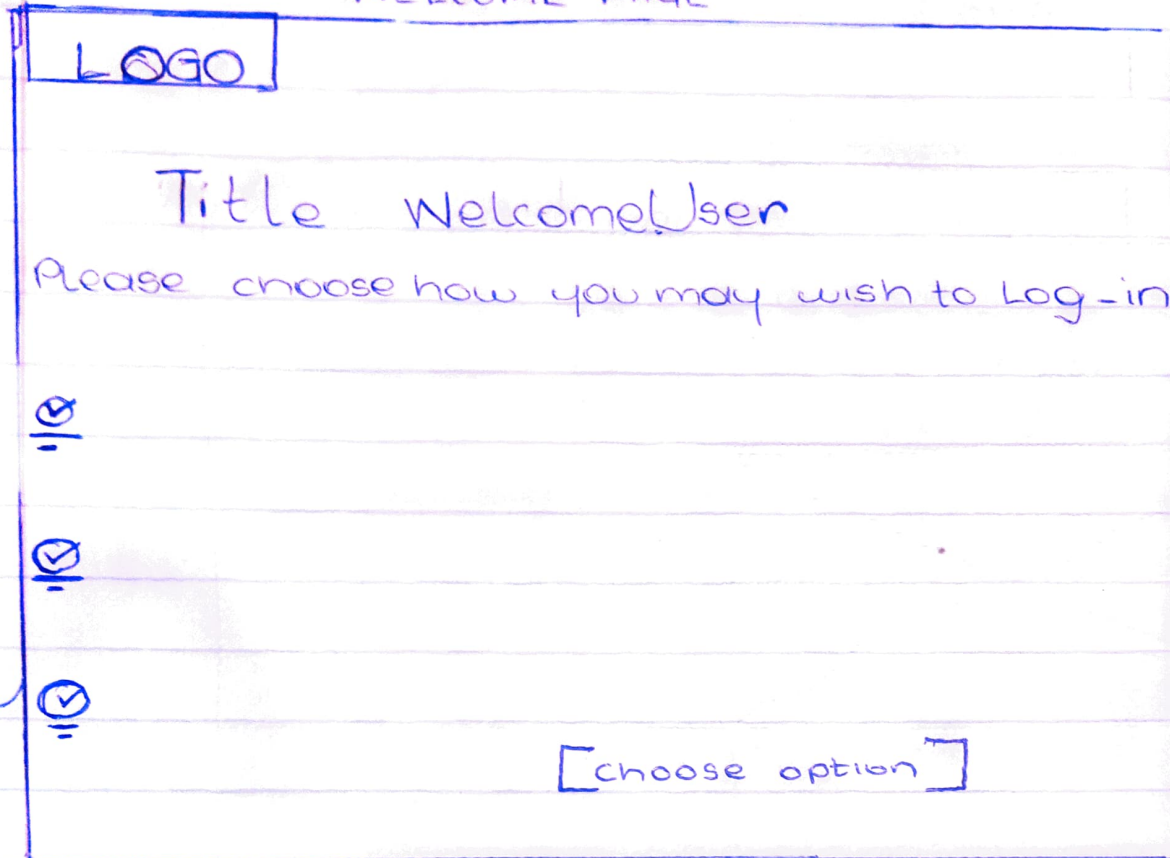 WELCOME PAGE
LOGO
Title Welcome User
Please choose how you may wish to Log-in
[choose option]